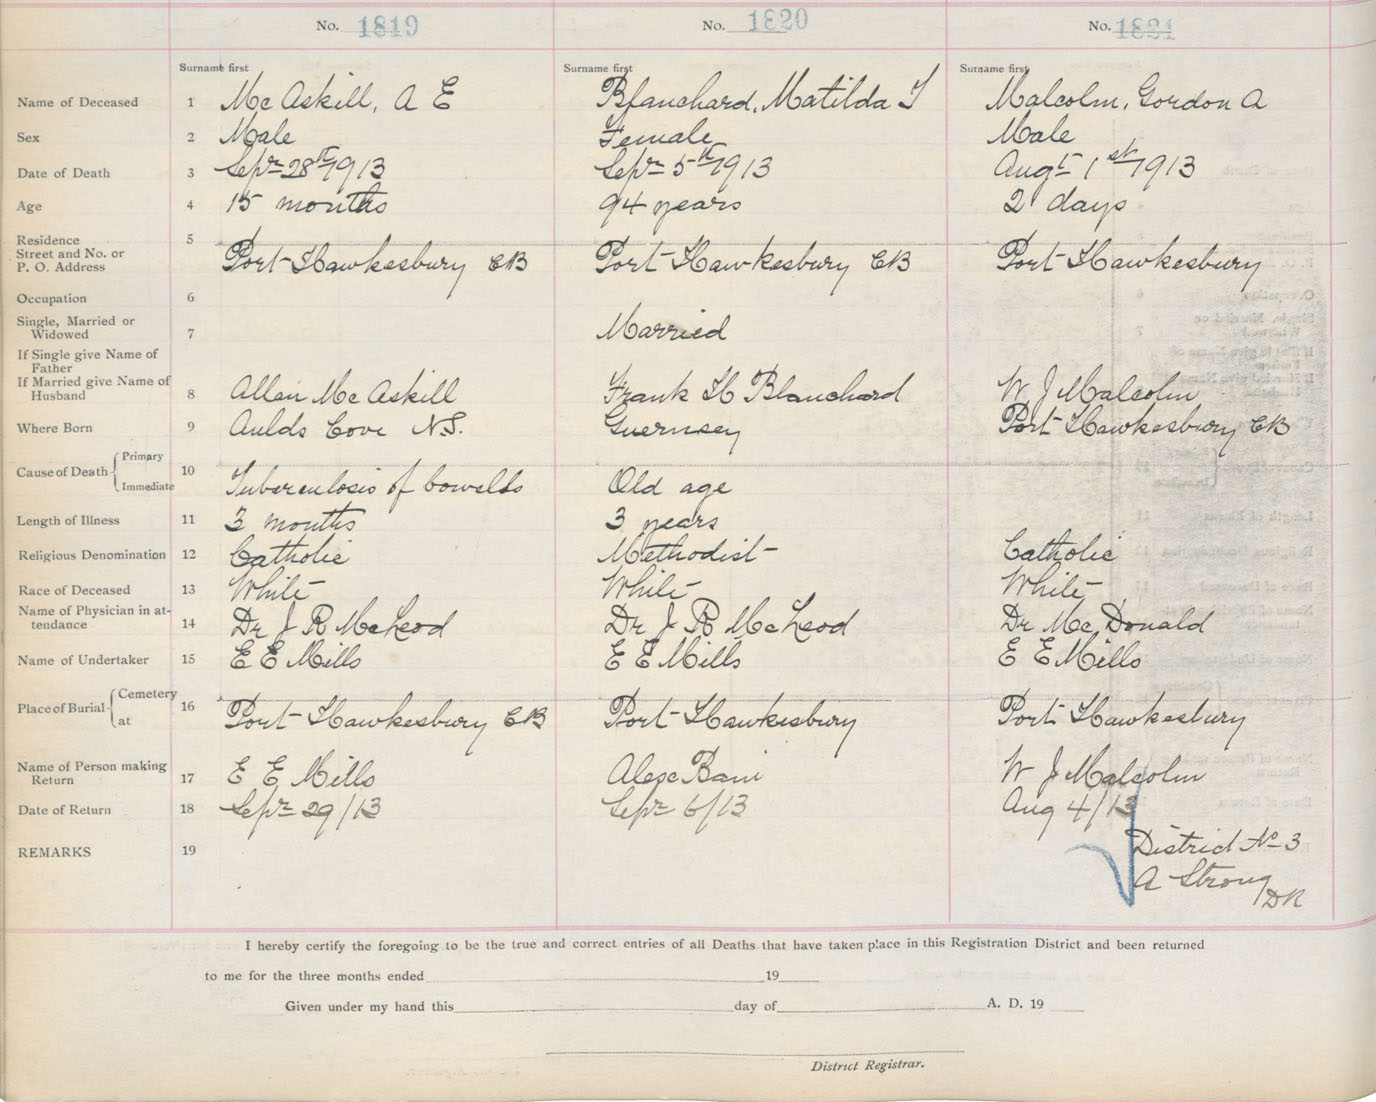 No. 1819 No. 1820 No. 1821
Surname first Surname first Surname first
Name of Deceased 1 McAskill, A E Blanchard, Matilda J Malcolm, Gordon A
Sex 2 Male Female Male
Date of Death 3 Sepr 28th 1913 Sepr 5th 1913 Augt 1st 1913
Age 4 15 months 94 years 2 days
Residence 5
Street and No. or
P. O. Address Port Hawkesbury CB Port Hawkesbury CB Port Hawkesbury
Occupation 6
Single, Married or
Widowed 7 Married
If Single give Name of
Father
If Married give Name of
Husband 8 Allan McAskill Frank H Blanchard W J Malcolm
Where Born 9 Aulds Cove N.S. Guernsey Port Hawkesbury CB
Cause of Death Primary
Immediate 10 Tuberculosis of bowelds Old age
Length of Illness 11 3 months 3 years
Religious Denomination 12 Catholic Methodist Catholic
Race of Deceased 13 White White White
Name of Physician in at-
tendance 14 Dr J R McLeod Dr J R McLeod Dr McDonald
Name of Undertaker 15 E E Mills E E Mills E E Mills
Place of Burial Cemetery
at 16 Port Hawkesbury CB Port Hawkesbury Port Hawkesbury
Name of Person making
Return 17 E E Mills Alex Bain W J Malcolm
Date of Return 18 Sepr 29/13 Sepr 6/13 Aug 4/13
REMARKS 19 District No 3
A Strong
DR
I hereby certify the foregoing to be the true and correct entries of all Deaths that have taken place in this Registration District and been returned
to me for the three months ended 19
Given under my hand this day of A. D. 19
District Registrar.